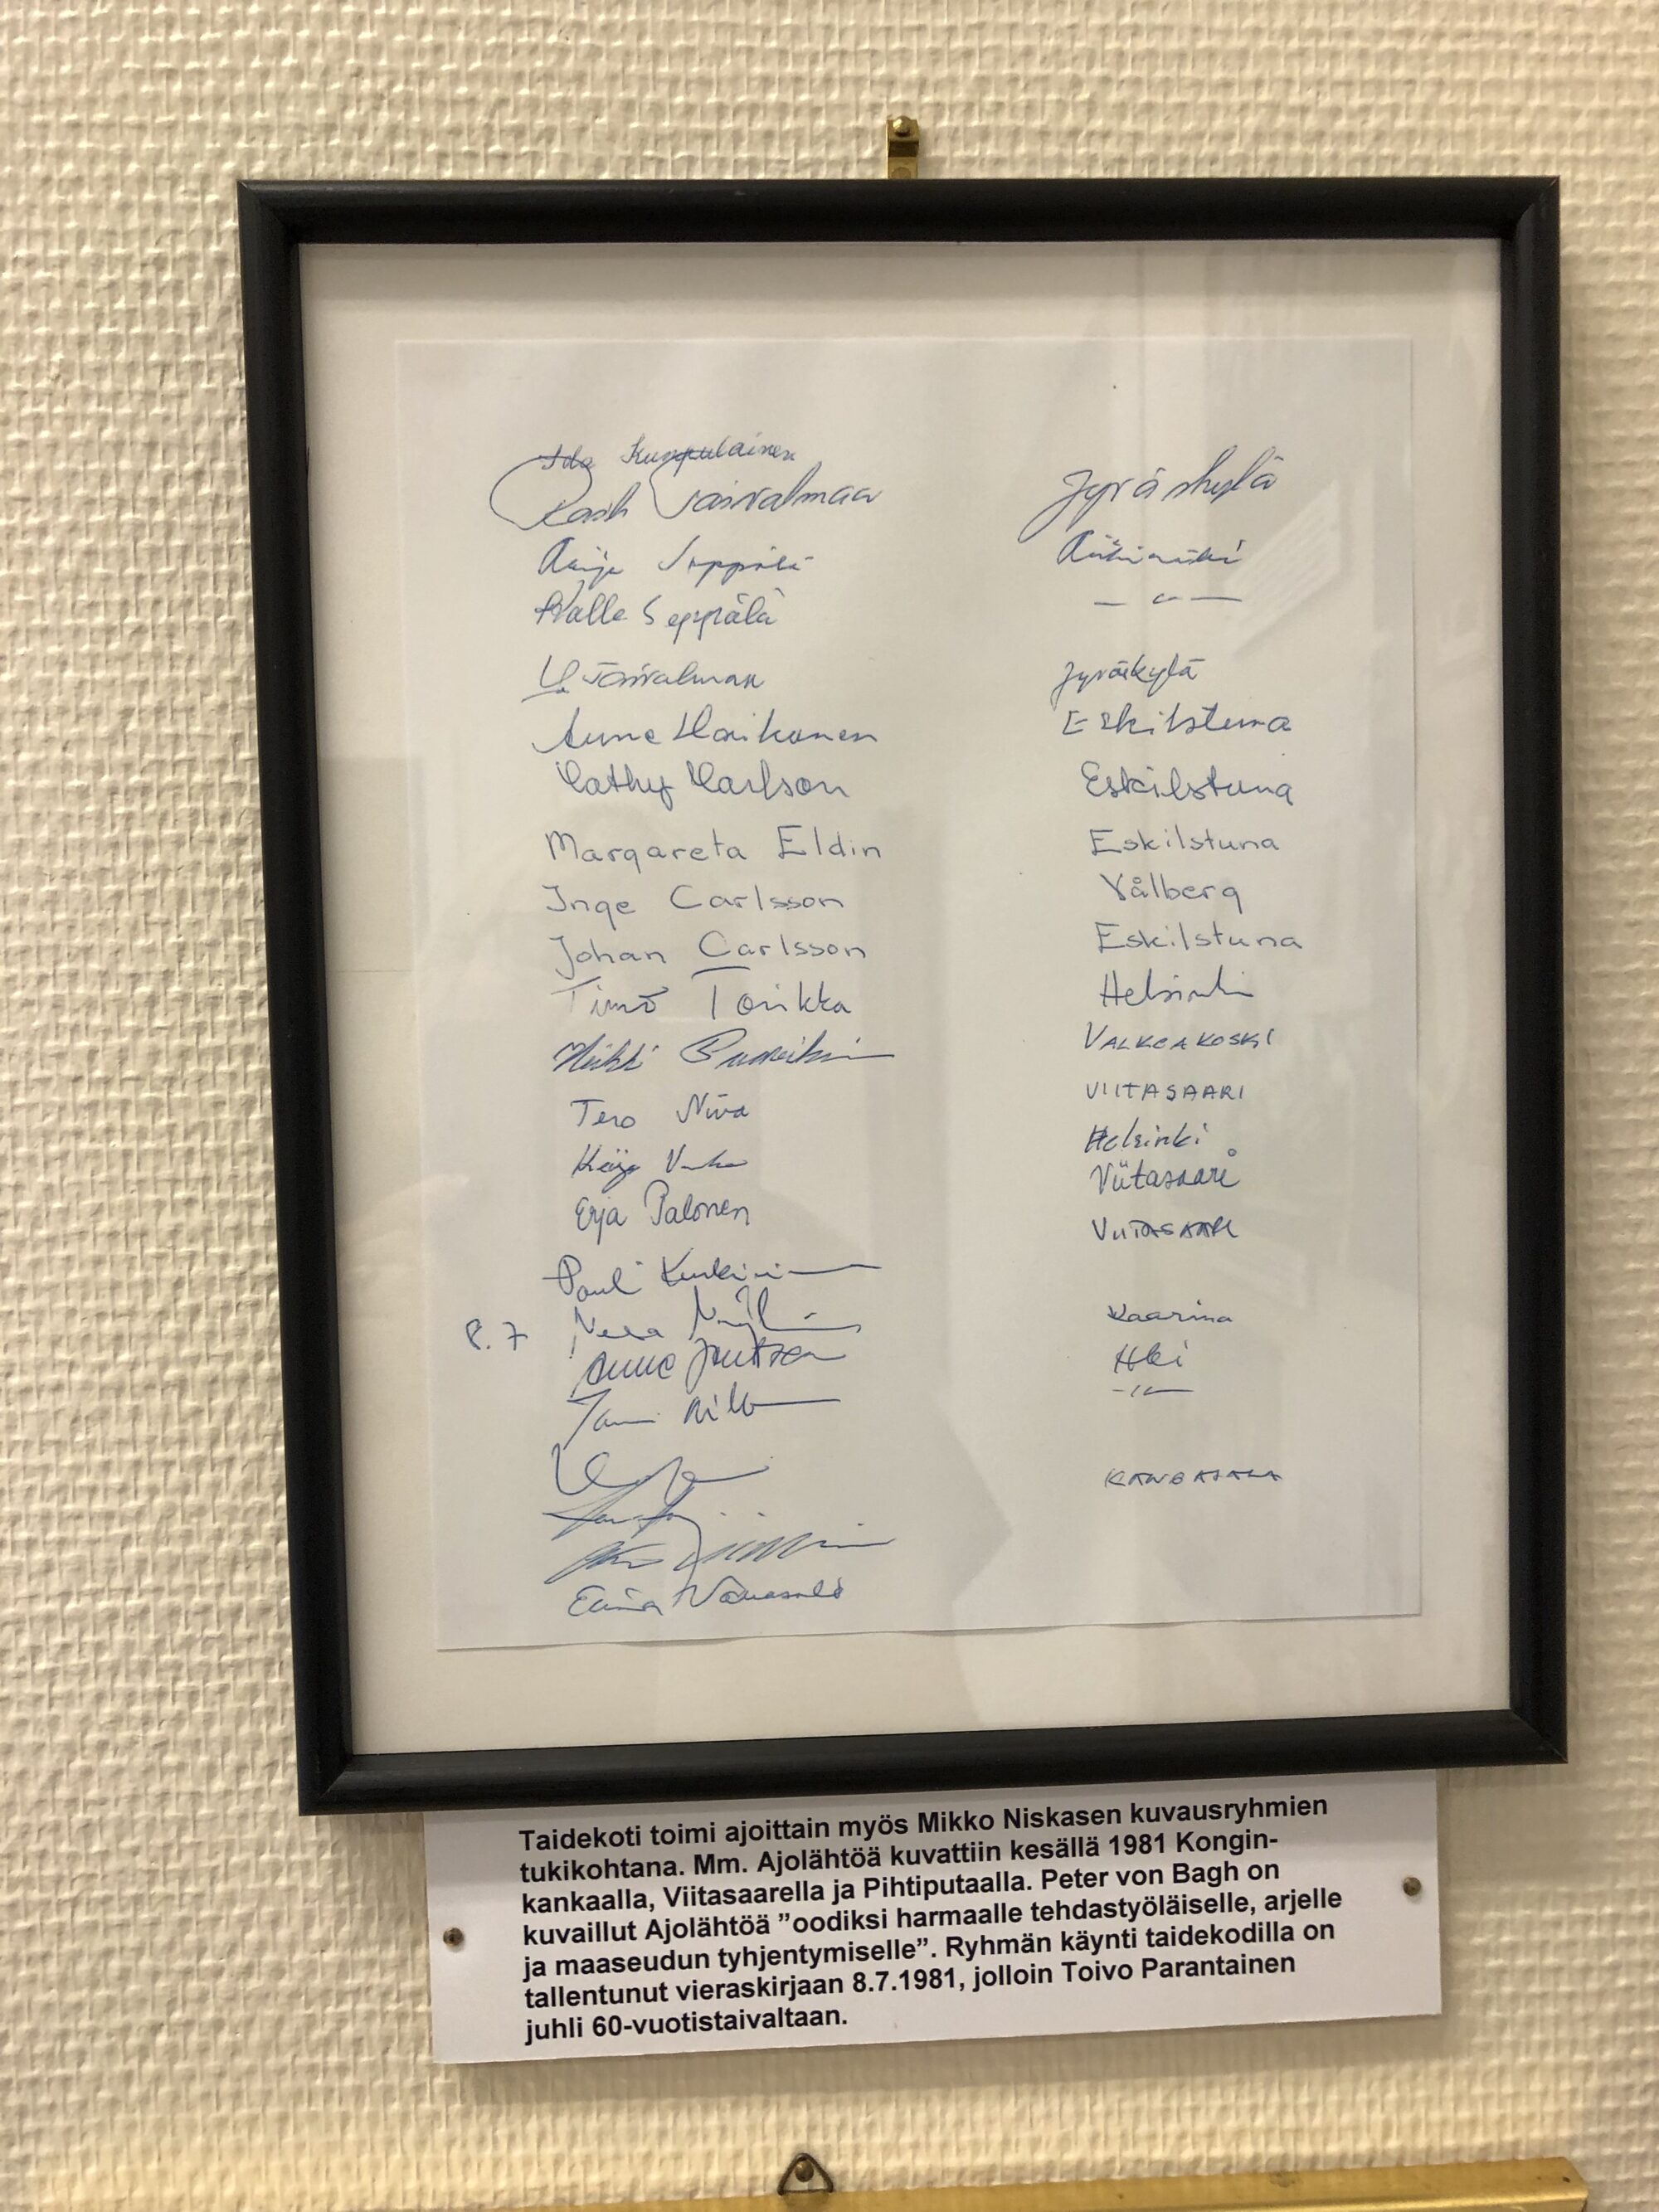 Ida Kumpulainen
Taivalmaa Jyväskylä
Raija Seppälä Riihimäki
Kalle Seppälä — " —
Taivalmaa Jyväskylä
Eskilstuna
Cathy Carlson Eskilstuna
Margareta Eldin Eskilstuna
Inge Carlsson Vålberg
Johan Carlsson Eskilstuna
Timo Torikka Helsinki
Heikki VALKEAKOSKI
Tero Niva VIITASAARI
Helsinki
Erja Palonen Viitasaari
VIITASAARI
8.7 Kaarina
Hki
— " —
KANGASALA
Taidekoti toimi ajoittain myös Mikko Niskasen kuvausryhmien
tukikohtana. Mm. Ajolähtöä kuvattiin kesällä 1981 Kongin-
kankaalla, Viitasaarella ja Pihtiputaalla. Peter von Bagh on
kuvaillut Ajolähtöä ”oodiksi harmaalle tehdastyöläiselle, arjelle
ja maaseudun tyhjentymiselle”. Ryhmän käynti taidekodilla on
tallentunut vieraskirjaan 8.7.1981, jolloin Toivo Parantainen
juhli 60-vuotistaivaltaan.